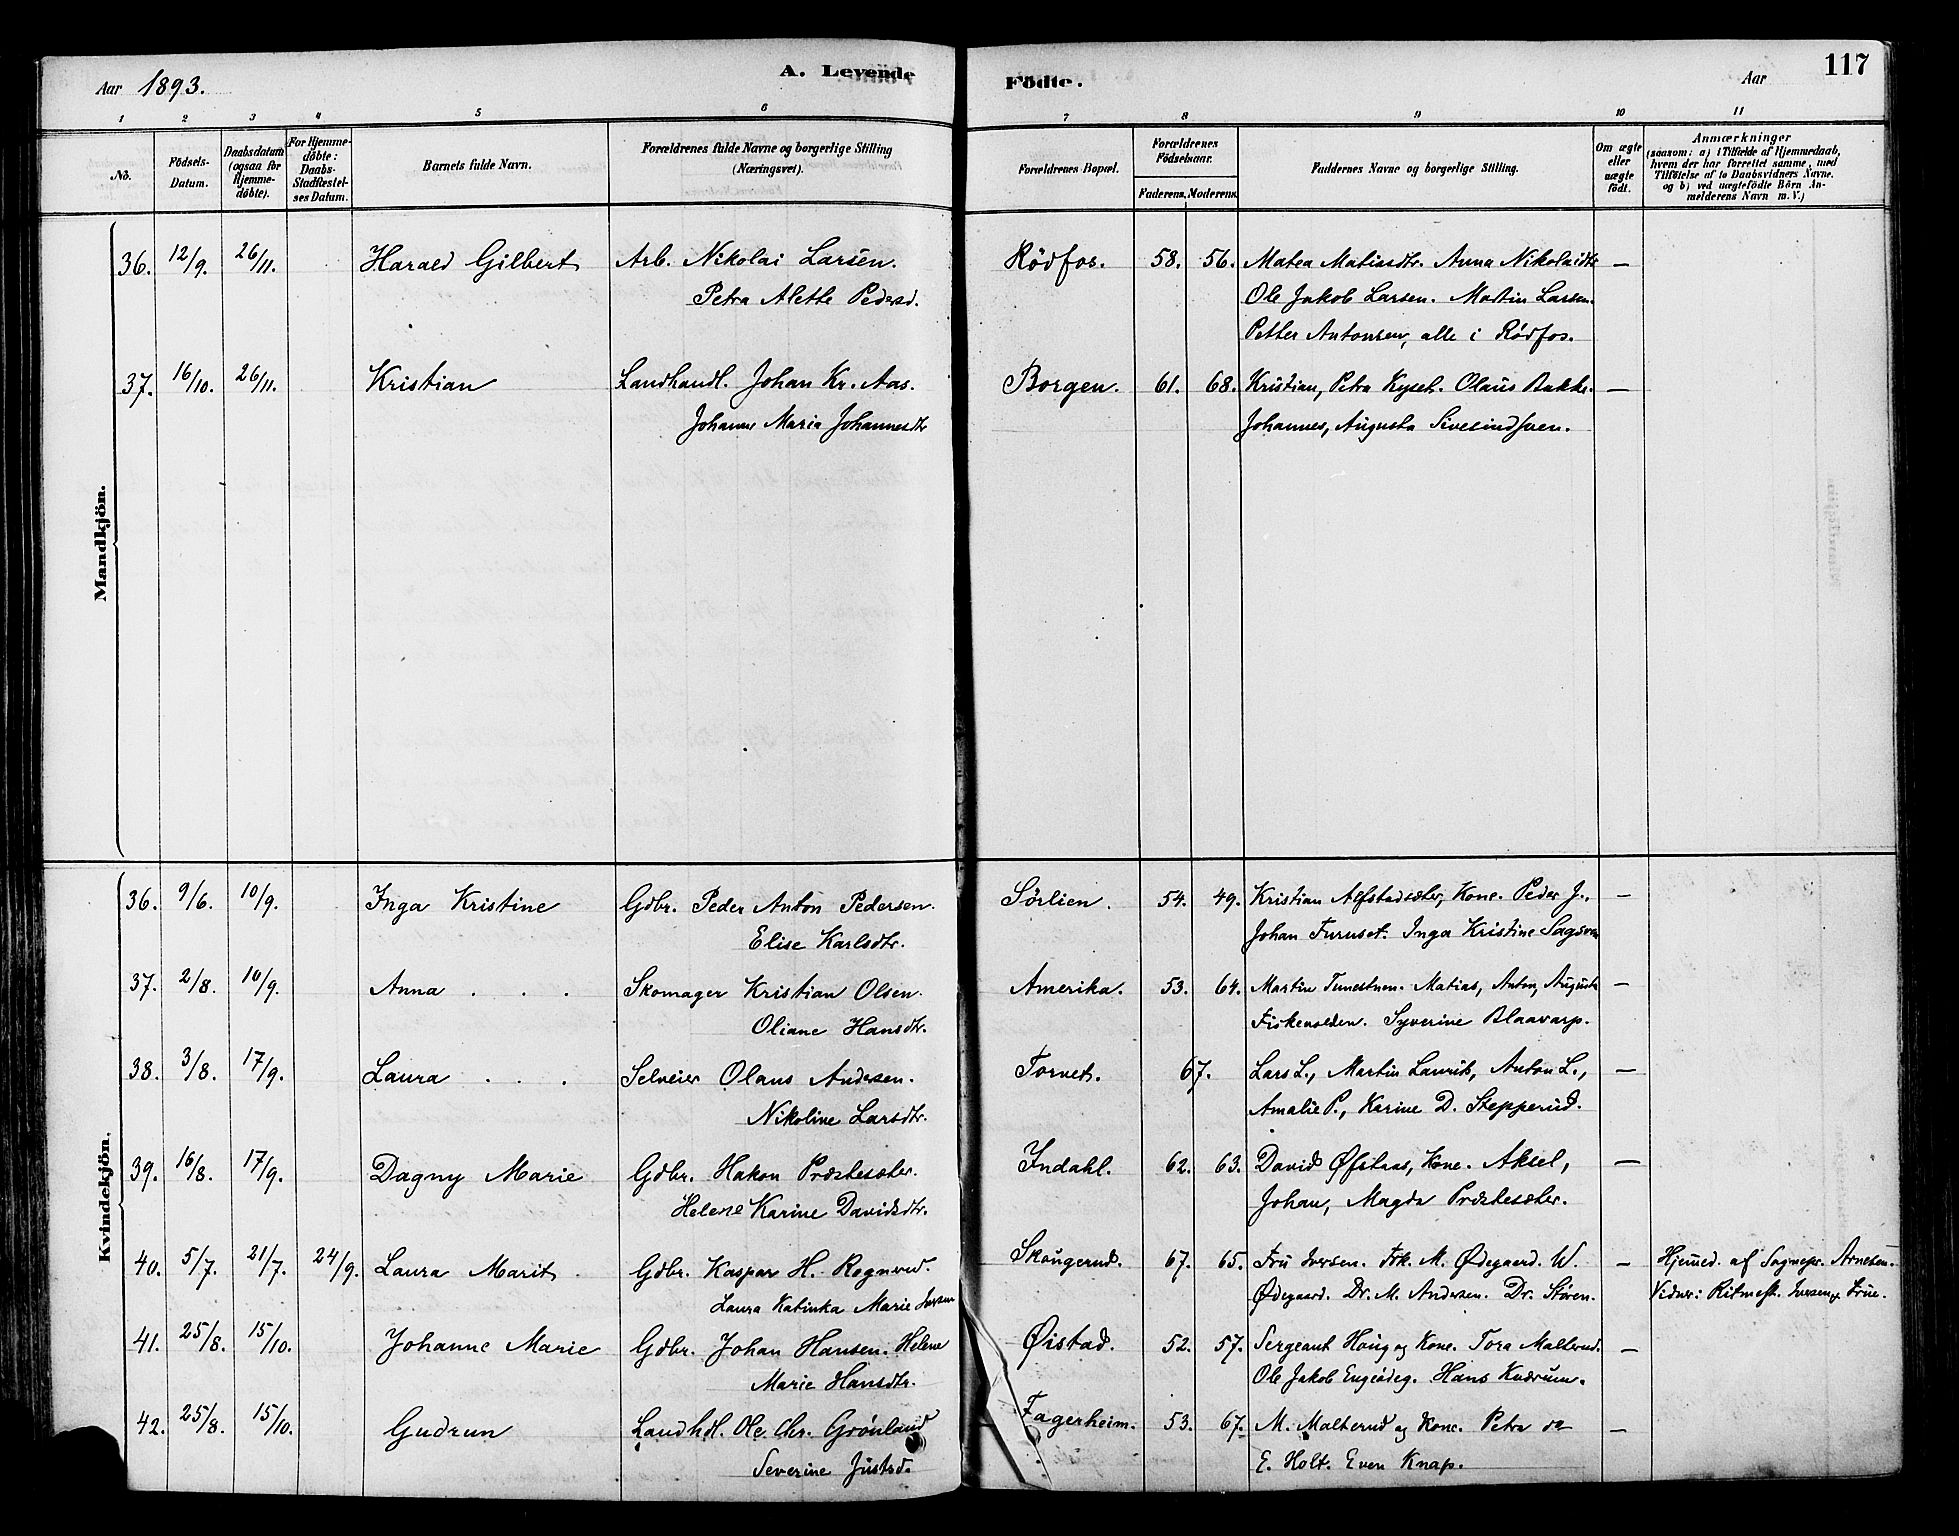 Aar 1893. A. Levende Födte. Aar 117
1 2 3 4 5 6 7 8 9 10 11
No. Födsels-Datum. Daabsdatum (ogsaa for Hjemme-döbte). For Hjemme-döbte: Daabs-Stadfæstel-ses Datum. Barnets fulde Navn. Forældrenes fulde Navne og borgerlige Stilling (Næringsvei). Forældrenes Bopæl. Forældrenes Födselsaar. Faderens. Moderens. Faddernes Navne og borgerlige Stilling. Om ægte eller uægte födt. Anmærkninger (saasom: a) i Tilfælde af Hjemmedaab, hvem der har forrettet samme, med Tilföielse af to Daabsvidners Navne. og b) ved uægtefödte Börn An-melderens Navn m. V.)
Mandkjön.
36. 12/9. 26/11. Harald Gilbert Arb. Nikolai Larsen. Rödfos. 58. 56. Matea Matiasdtr. Anna Nikolaidtr —
Petra Alette Pedersd. Ole Jakob Larsen. Martin Larsen.
Petter Antonsen, alle i Rødfos.
37. 16/10. 26/11. Kristian Landhandl. Johan Kr. Aas. Borgen. 61. 68. Kristian, Petra Kyset. Olaus Bakke. —
Johanne Maria Johannesdtr Johannes, Augusta Sivesindhven.
Kvindekjön.
36. 9/6. 10/9. Inga Kristine Gdbr. Peder Anton Pedersen. Sörlien. 54. 49. Kristian Alfstadsæter, Kone. Peder J., —
Elise Karlsdtr. Johan Furuset. Inga Kristine Sagvon
37. 2/8. 10/9. Anna . . . Skomager Kristian Olsen. Amerika. 53. 64. Martin Matias, Anton, Augusta —
Oliane Hansdtr. Fiskevolden. Syverine Blaavarp.
38. 3/8. 17/9. Laura . . . Selveier Olaus Andersen. Torvet. 67. Lars L., Martin Laurits, Anton L., —
Nikoline Larsdtr. Amalie P., Karine D. Stepperud.
39. 16/8. 17/9. Dagny Marie Gdbr. Hakon Præstesæter. Indahl. 62. 63. David Øfstaas, Kone. Aksel, —
Helene Karine Davidsdtr. Johan, Magda Præstesæter.
40. 5/7. 21/7. 24/9. Laura Marit Gdbr. Kaspar H. Rognerud. Skougerud. 67. 65. Fru Iversen. Frk. M. Ødegaard. W. — Hjemmed. af Sognepr. Arnesen.
Laura Katinka Marie Iversen Ødegaard. Dr. M. Andersen. Dr. Støren. Vidner: Ritmest. Iversen og Frue.
41. 25/8. 15/10. Johanne Marie Gdbr. Johan Hansen. Helene Øistad. 52. 57. Sergeant Houg og Kone. Tora Malterud. —
Marie Hansdtr. Ole Jakob Engeødeg. Hans Kværum.
42. 25/8. 15/10. Gudrun Landhdl. Ole Chr. Grönland Fagerheim. 53. 67. M. Malterud og Kone. Petra og —
Severine Justsd. E. Holt. Even Knap.